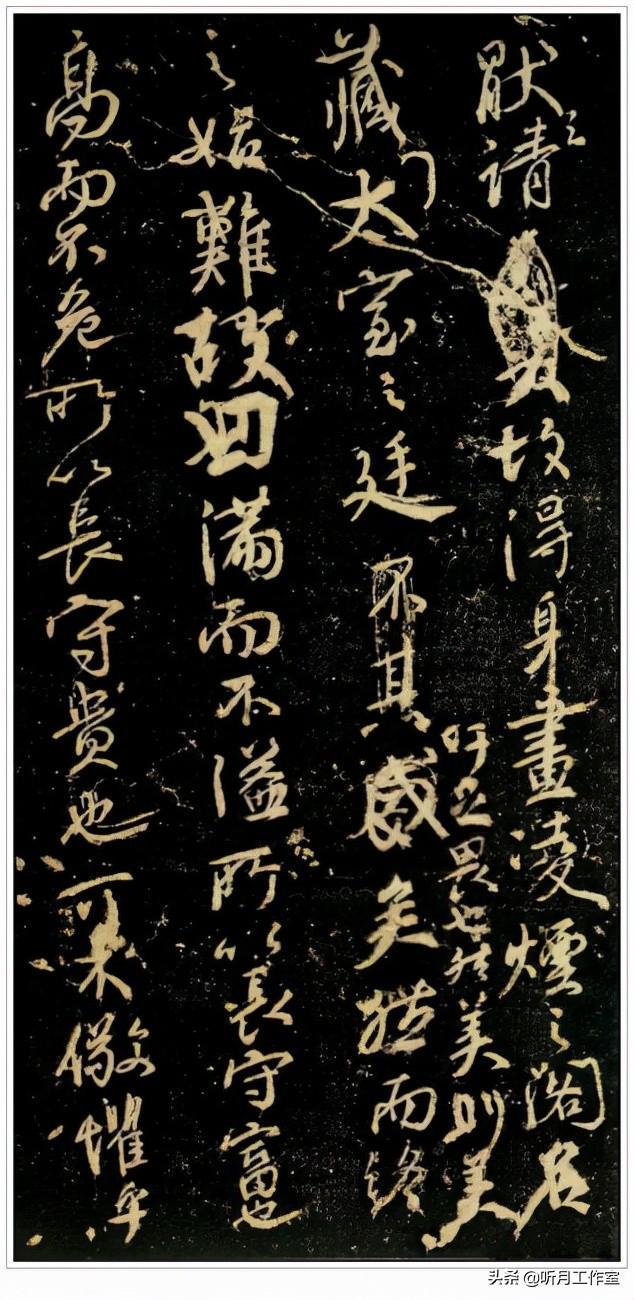 猒之請故得身畫淩煙之閣名
吁足畏也然美則美
藏太室之廷其矣然而終
之始難故曰滿而不溢所以長守富也
高而不危所以長守貴也可不儆懼乎
头条 @听月工作室